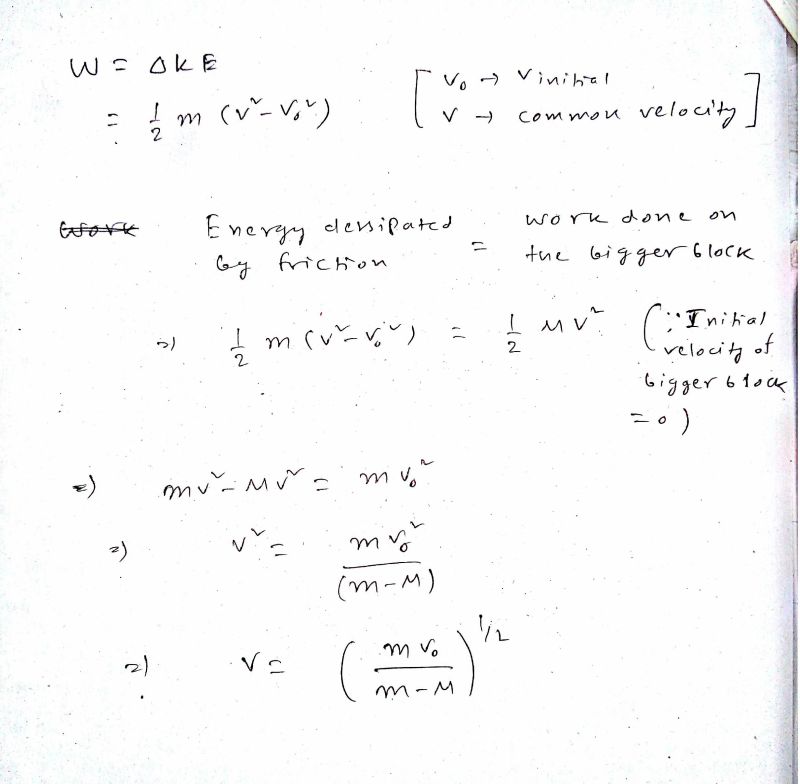 W = ΔKE
= 1/2 m (v² - v₀²) [ v₀ → v initial
v → common velocity ]
Work Energy dessipated by friction = work done on the bigger block
⇒) 1/2 m (v² - v₀²) = 1/2 M v² (∵ Initial velocity of bigger block = 0)
⇒) mv² - Mv² = m v₀²
⇒) v² = m v₀² / (m - M)
⇒) v = ( m v₀ / m - M )^1/2